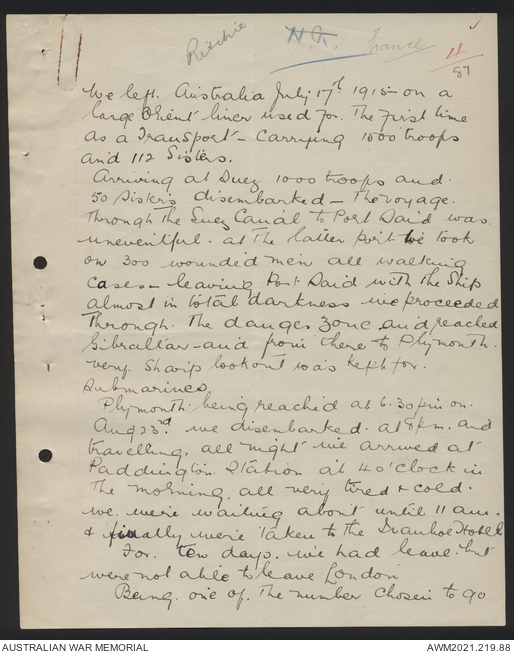 Ritchie N.G. France 4
87
We left. Australia July 17th 1915 on a
large Orient liner used for. The first time
as a Transport - carrying 1500 troops
and 112 Sisters.
Arriving at Suez 1000 troops and.
50 Sisters disembarked - The voyage.
through the Suez Canal to Port Said was.
uneventful. at the latter port we took
on 300 wounded men all walking
cases - leaving Port Said with the Ship
almost in total darkness we proceeded
through. the danger zone and reached
Gibraltar - and from there to Plymouth.
very. Sharp lookout was kept for.
Submarines
Plymouth being reached at 6.30pm on.
Aug 23rd we disembarked. at 8pm. and
travelling. all night we arrived at
Paddington Station at 4 o'clock in
the morning, all very tired & cold.
we. were waiting about until 11 am.
& finally were taken to the Ivanhoe Hotel
For. ten days. we had leave. but
were not able to leave London
Being. one of. The number chosen to go
AUSTRALIAN WAR MEMORIAL
AWM2021.219.88